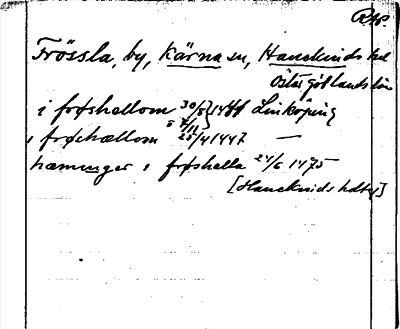 Frössla, by, Kärna sn, Hanekinds hd
Östergötlands län
i frøshællom 30/8 1444 Linköping
i frøshællom 25/4 1447 —
hæminger i frøshalla 24/6 1475
[Hanekinds hdby]